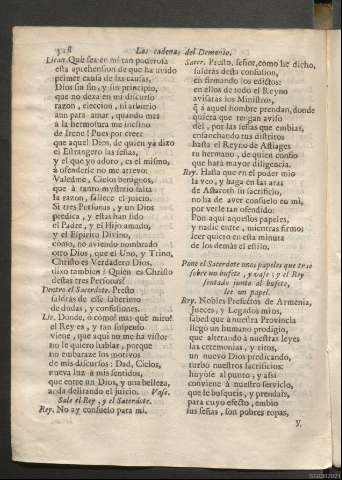 328
Las cadenas del Demonio.
Lican. Què sea en mi tan poderosa
esta aprehension de que ha avido
primer causa de las causas,
Dios sin fin, y sin principio,
que no dexa en mi discurso
razon, eleccion, ni arbitrio
aun para amar, quando mas
à la hermosura me inclino
de Irene! Pues por creer
que aquel Dios, de quien ya dixo
el Estrangero las señas,
y el que yo adoro, es el mismo,
à ofenderle no me atrevo:
Valedme, Cielos benignos,
que à tanto mysterio falta
la razon, fallece el juicio.
Si tres Personas, y un Dios
predica, y estas han sido
el Padre, y el Hijo amado,
y el Espiritu Divino,
como, no aviendo nombrado
otro Dios, que el Uno, y Trino,
Christo es Verdadero Dios,
dixo tambien? Quièn es Christo
destas tres Personas?
Dentro el Sacerdote. Presto
saldràs de esse laberinto
de dudas, y confusiones.
Lic. Donde, ò como? mas què miro!
el Rey es, y tan suspenso
viene, que aqui no me ha visto:
no le quiero hablar, porque
no embaraze los motivos
de mis discursos: Dad, Cielos,
nueva luz à mis sentidos,
que entre un Dios, y una belleza,
anda delirando el juicio. Vase.
Sale el Rey, y el Sacerdote.
Rey. No ay consuelo para mi.
Sacer. Presto, señor, como he dicho,
saldràs desta confusion,
en firmando los edictos:
en ellos de todo el Reyno
avisaràs los Ministros,
q̃ à aquel hombre prendan, donde
quiera que tengan aviso
dèl, por las señas que embias,
ensanchando tus distritos
hasta el Reyno de Astiages
tu hermano, de quien confio
que harà mayor diligencia.
Rey. Hasta que en el poder mio
la veo, y haga en las aras
de Astaroth su sacrificio,
no ha de aver consuelo en mi,
por verle tan ofendido:
Pon aqui aquestos papeles,
y nadie entre, mientras firmo:
leer quiero en esta minuta
de los demàs el estilo.
Pone el Sacerdote unos papeles que trae
sobre un bufete, y vase; y el Rey
sentado junto al bufete,
lee un papel.
Rey. Nobles Prefectos de Armenia,
Jueces, y Legados mios,
sabed que à nuestra Provincia
llegò un humano prodigio,
que alterando à nuestras leyes
las ceremonias, y ritos,
un nuevo Dios predicando,
turbò nuestros sacrificios:
huyòse al punto, y assi
conviene à nuestro servicio,
que le busqueis, y prendais,
para cuyo efecto, embio
sus señas, son pobres ropas,
y.